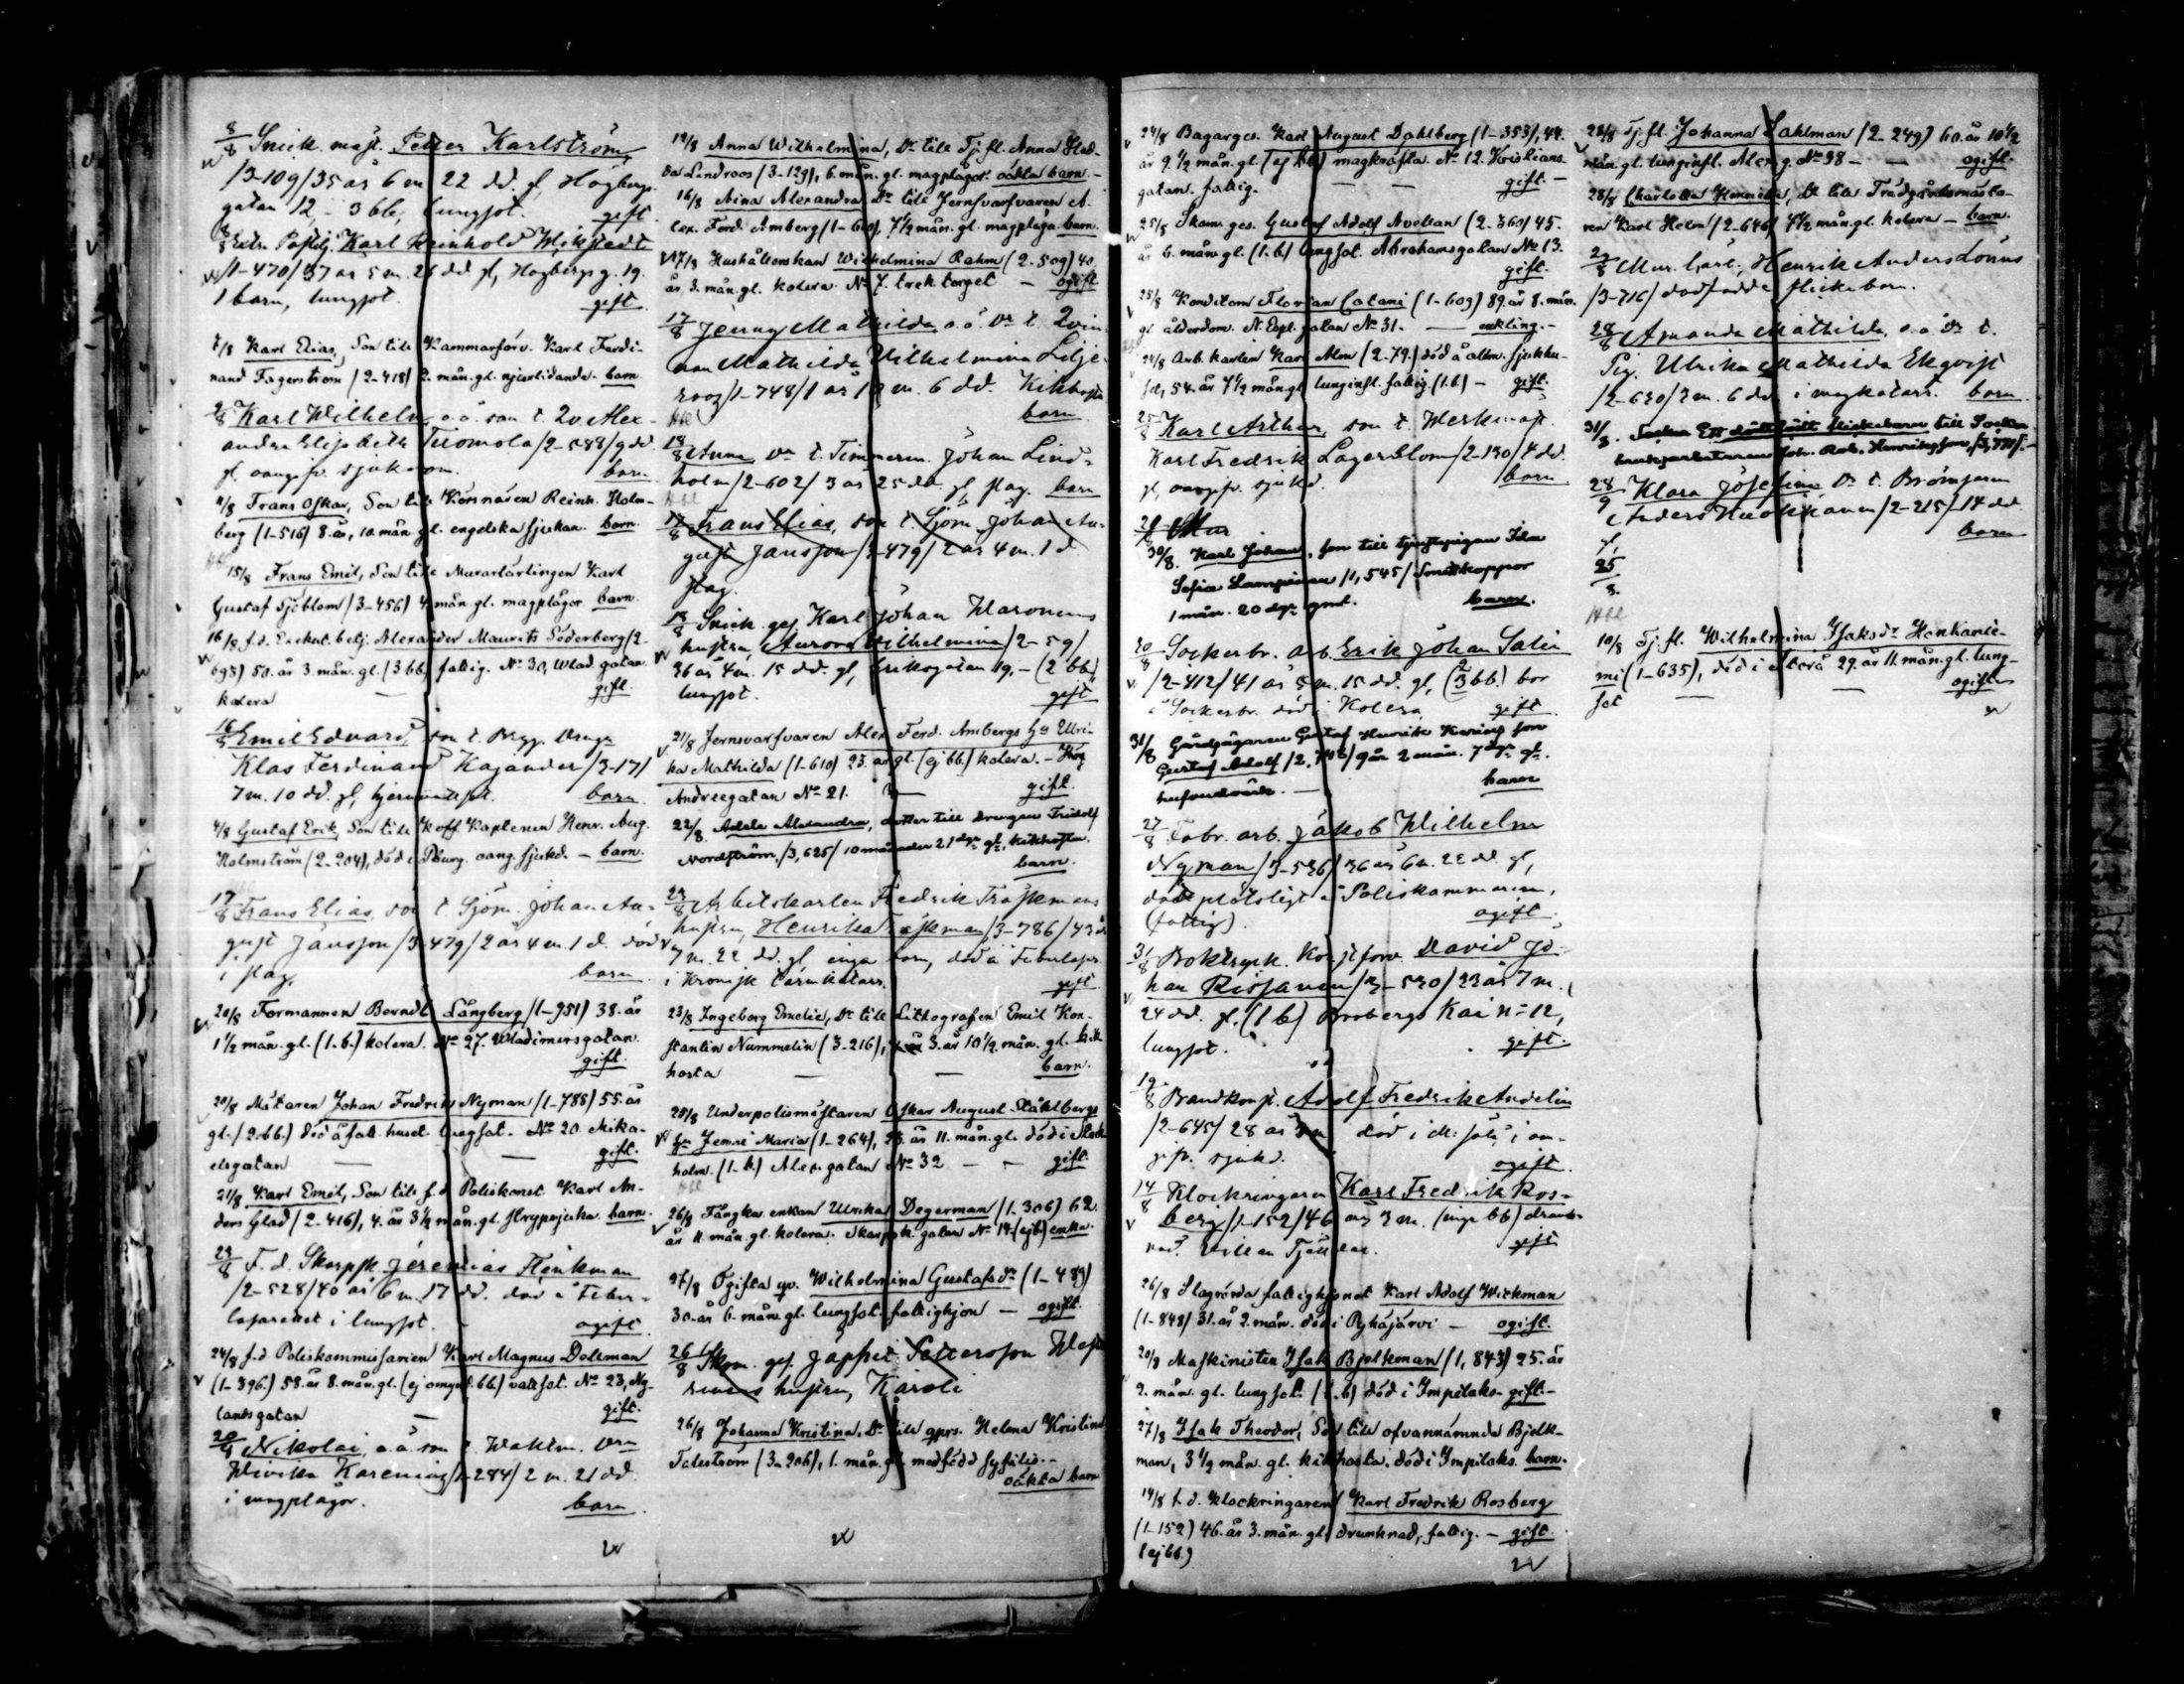 8/8 Snick. mäst. Petter Karlström,
/3-109/ 35 år 6 m 22 dd. gl, Högbergs-
gatan 12, - 3 bb, lungsot. gift
8/8 Extr. Postilj. Karl Reinhold Wikstedt
/1-470/ 37 år 5 m. 26 dd. gl, Högbergsg. 19.
1 barn, lungsot. gift
Karl Elias, Son till Kammarförv. Karl Ferdi-
nand Fagerström (2-418) 2. mån. gl. njurlidande - barn
9/8 Karl Wilhelm o.ä. son t. Qv. Alex-
andra Elisabeth Tuomola /2-588/ 9 dd.
gl. oangifv. sjukdom. barn
11/8 Frans Oskar, Son till Körsnären Reinh. Holm-
berg (1-516) 8. år, 10 mån. gl. engelska sjukan. barn.
15/8 Frans Emil, Son till Murarlärlingen Karl
Gustaf Sjöblom (3-456) 4 mån. gl. magplågor barn.
16/8 f.d. Exekut. betj. Alexander Maurits Söderberg (2-
695) 50. år 3. mån. gl. (3 bb) fattig. No 30, Wlad. gatan.
kolera — gift.
16/8 Emil Edvard son t. Drag
Klas Ferdinand Kajander /3-171/
7 m. 10 dd. gl, barn
4/8 Gustaf Erik, Son till Koff. Kaptenen Henr. Aug.
Holmström (2-204), död i Pburg. oang. sjukd. - barn.
17/8 Frans Elias, son t. Sjöm. Johan Au-
gust Jansson /3-479/ 2 år 4 m. 1 d. död
i slag. barn
20/8 Formannen Berndt Långberg (1-951) 38. år
1 1/2 mån. gl. (1-b.) kolera. No 27. Wladimirsgatan.
gift.
20/8 Mätaren Johan Fredrik Nyman (1-788) 55. år
gl. (2. bb.) död å fatt. huset. lungsot. No 20 Mika-
elsgatan — — gift.
21/8 Karl Emil, Son till f.d Poliskonst. Karl An-
ders Glad (2-416), 4. år 3 1/2 mån. gl. strypsjuka. barn.
23/8 F. d. Skarpsk. Jeremias Flinkman
/2-528/ 40 år 6 m. 17 dd. död å Feber-
lasarettet i lungsot. ogift
24/8 f.d Poliskommissarien Karl Magnus Dolkman
(1-396.) 58. år 8. mån. gl. (ej omynd. bb) vattsot. No 23, Ny-
landsgatan — gift.
Nikolai, o.ä. son t. Waktm. Dr
Wivika Karenius /1-284/ 2 m. 21 dd.
i magplågor. barn
19/8 Anna Wilhelmina, Dr till Tj. fl. Anna Hed-
da Lindroos (3-129), 6. mån. gl. magplågor. oäkta barn. -
16/8 Aina Alexandra Dr till Jernsvarfvaren A-
lex. Ferd. Amberg (1-610), 7 1/2 mån. gl. magplåga. barn.
17/8 Hushållerskan Wilhelmina Rahm (2-509) 40.
år 3. mån. gl. kolera No 7. trek. torget — ogift
17/8 Jenny Mathilda, o.ä. Dr t. Qvin-
nan Mathilda Wilhelmina Lilje-
roos /1-748/ 1 år 10 m. 6 dd. Kikhosta
barn
18/8 Anna Dr t. Timmerm. Johan Lind-
holm /2-602/ 3 år 25 dd. gl. slag. barn
17/8 Frans Elias, son t. Sjöm. Johan Au-
gust Jansson /3-479/ 2 år 4 m. 1 d.
slag.
19/8 Snick. ges. Karl Johan Waronens
hustru, Aurora Wilhelmina /2-59/
36 år 4 m. 15 dd. gl, Eriksgatan 19, - (2 bb),
lungsot. gift
21/8 Jernsvarfvaren Alex. Ferd. Ambergs Hu Ulri-
ka Mathilda (1-610) 23. år gl. (ej bb.) kolera. -
Andreegatan No 21. — gift.
22/8. Adele Alexandra, dotter till drengen Fridolf
Nordström, /3, 625/ 10 månader 21 dgr gl., kikhosta.
barn.
23/8 Arbetskarlen Fredrik Träskmans
hustru, Henrika Träskman /3-786/ 43 år
7 m. 22 dd. gl, inga barn, död å Feberlasar.
i kronisk tarmkatarr. gift
23/8 Ingeborg Emelie, Dr till Lithografen Emil Kon-
stantin Nummelin (3-216), 3. år 10 1/2 mån. gl. kik-
hosta — — barn.
25/8 Underpolismästaren Oskar August Ståhlbergs
hu Jenni Maria (1-264), 23. år 11. mån. gl. död i Stock-
holm. (1-b.) Alex. gatan No 32 — — gift.
26/8 Fångkn. enkan Ulrika Degerman (1-306) 62.
år 11. mån. gl. kolera. Skarpsk. gatan No 14. (ej b) enka.
27/8 Ogifta qp. Wilhelmina Gustafsdr (1-483)
30. år 6. mån. gl. lungsot. fattighjon — ogift.
26/8 Skom. ges. Japhet Pettersson
hustru, Karoli
26/8 Johanna Kristina, Dr till qprs. Helena Kristina
Talström (3-206), 1. mån. gl. medfödd syfilis. -
oäkta barn
24/8 Bagarges. Karl August Dahlberg (1-353), 44.
år 9 1/2 mån. gl. (ej bb) magkräfta. No 12. Kristians-
gatan. fattig. — — gift. -
25/8 Skom. ges. Gustaf Adolf Avellan (2-360) 45.
år 6. mån. gl. (1. b.) lungsot. Abrahamsgatan No 13.
gift.
25/8 Konditorn Florian Catani (1-609) 89. år 8. mån.
gl ålderdom. N. Espl. gatan No 31. — enkling. -
24/8 Arb. karlen Karl Alm (2-79.) död å allm. sjukhu-
set, 54. år 7 1/2 mån. gl lunginfl. fattig. (1. b.) - gift.
25/8 Karl Arthur, son t. Werkmäst.
Karl Fredrik Lagerblom /2-130/ 4 dd.
gl, oangifv. sjukd. barn
30/8. Karl Johan, son till tjenstepigan Ida
Sofia Lampinen /1, 545/ Smittkoppor
1 mån. 20 dgr gml. barn.
30/8 Sockerbr. arb. Erik Johan Salin
/2-412/ 41 år 5 m. 15 dd. gl, (3 bb.) bor
i Sockerbr. död i Kolera gift
31/8 Gårdsägaren Gustaf Henrik son
Gustaf Adolf /2, 748/ 9 år 2 mån. 7 dgr gl.
— barn
27/8 Fabr. arb. Jakob Wilhelm
Nyman /3-536/ 36 år 6 m. 22 dd. gl,
död plötsligt i Poliskammaren,
(fattig). ogift
31/8 Boktryck. Konstförv. David Jo-
han Rissanen /3-530/ 23 år 7 m.
24 dd. gl, (1 b) Brobergs Kai N=12,
lungsot. gift.
19/8 Brandkonst. Adolf Fredrik Andelin
/2-645/ 28 år död i
sjukd. ogift
14/8 Klockringaren Karl Fredrik Ros-
berg /1-152/ 46 år 3 m. (inga bb) drunk-
nad. gift
26/8 Slagrörda fattighjonet Karl Adolf Wickman
(1-848) 31. år 2. mån. död i Pyhäjärvi — ogift.
20/8 Maskinisten Isak Bjelkman (1, 843) 25. år
2. mån. gl. lungsot. död i Impilaks - gift. -
27/8 Isak Theodor, Son till ofvannämnda Bjelk-
man, 3 1/2 mån. gl. kikhosta. död i Impilaks. barn.
14/8 f. d. Klockringaren Karl Fredrik Rosberg
(1-152) 46. år 3. mån. gl. drunknad, fattig. - gift.
(ej bb)
22/8 Tj. fl. Johanna Dahlman (2-249) 60. år 10 1/2
mån. gl. lunginfl. Alex. g. No 38 - — ogift.
28/8 Charlotta Henrietta, Dr till Trädgårdsmästa-
ren Karl Helm (2-646) 4 1/2 mån. gl. kolera — barn.
Mur. lärl. Henrik Anders Lönns
/3-716/ dödfödda flickebarn.
28/8 Amanda Mathilda, o.ä. Dr t.
Pig. Ulrika Mathilda Ekqvist
/2-630/ 2 m. 6 dd. i magkatarr. barn
31/8. Ett dödfödt flickebarn till Socker-
bruksarbetaren Joh. Rob. Henriksson,
28/9 Klara Josefina Dr t. Brömsaren
Anders Huokkanen /2-215/ 14 dd.
gl, barn
25/8.
10/8 Tj. fl. Wilhelmina Isaksdr Honkanie-
mi (1-635), död i Storå 29. år 11. mån. gl. lung-
sot — — ogift